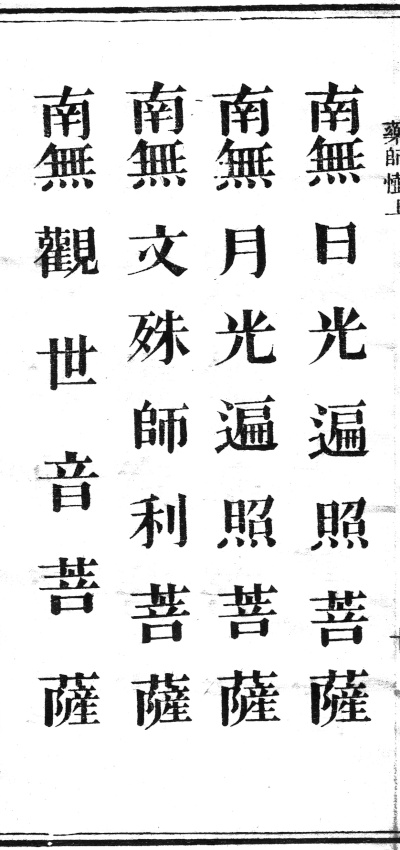 藥師懺上
南無日光遍照菩薩
南無月光遍照菩薩
南無文殊師利菩薩
南無觀世音菩薩